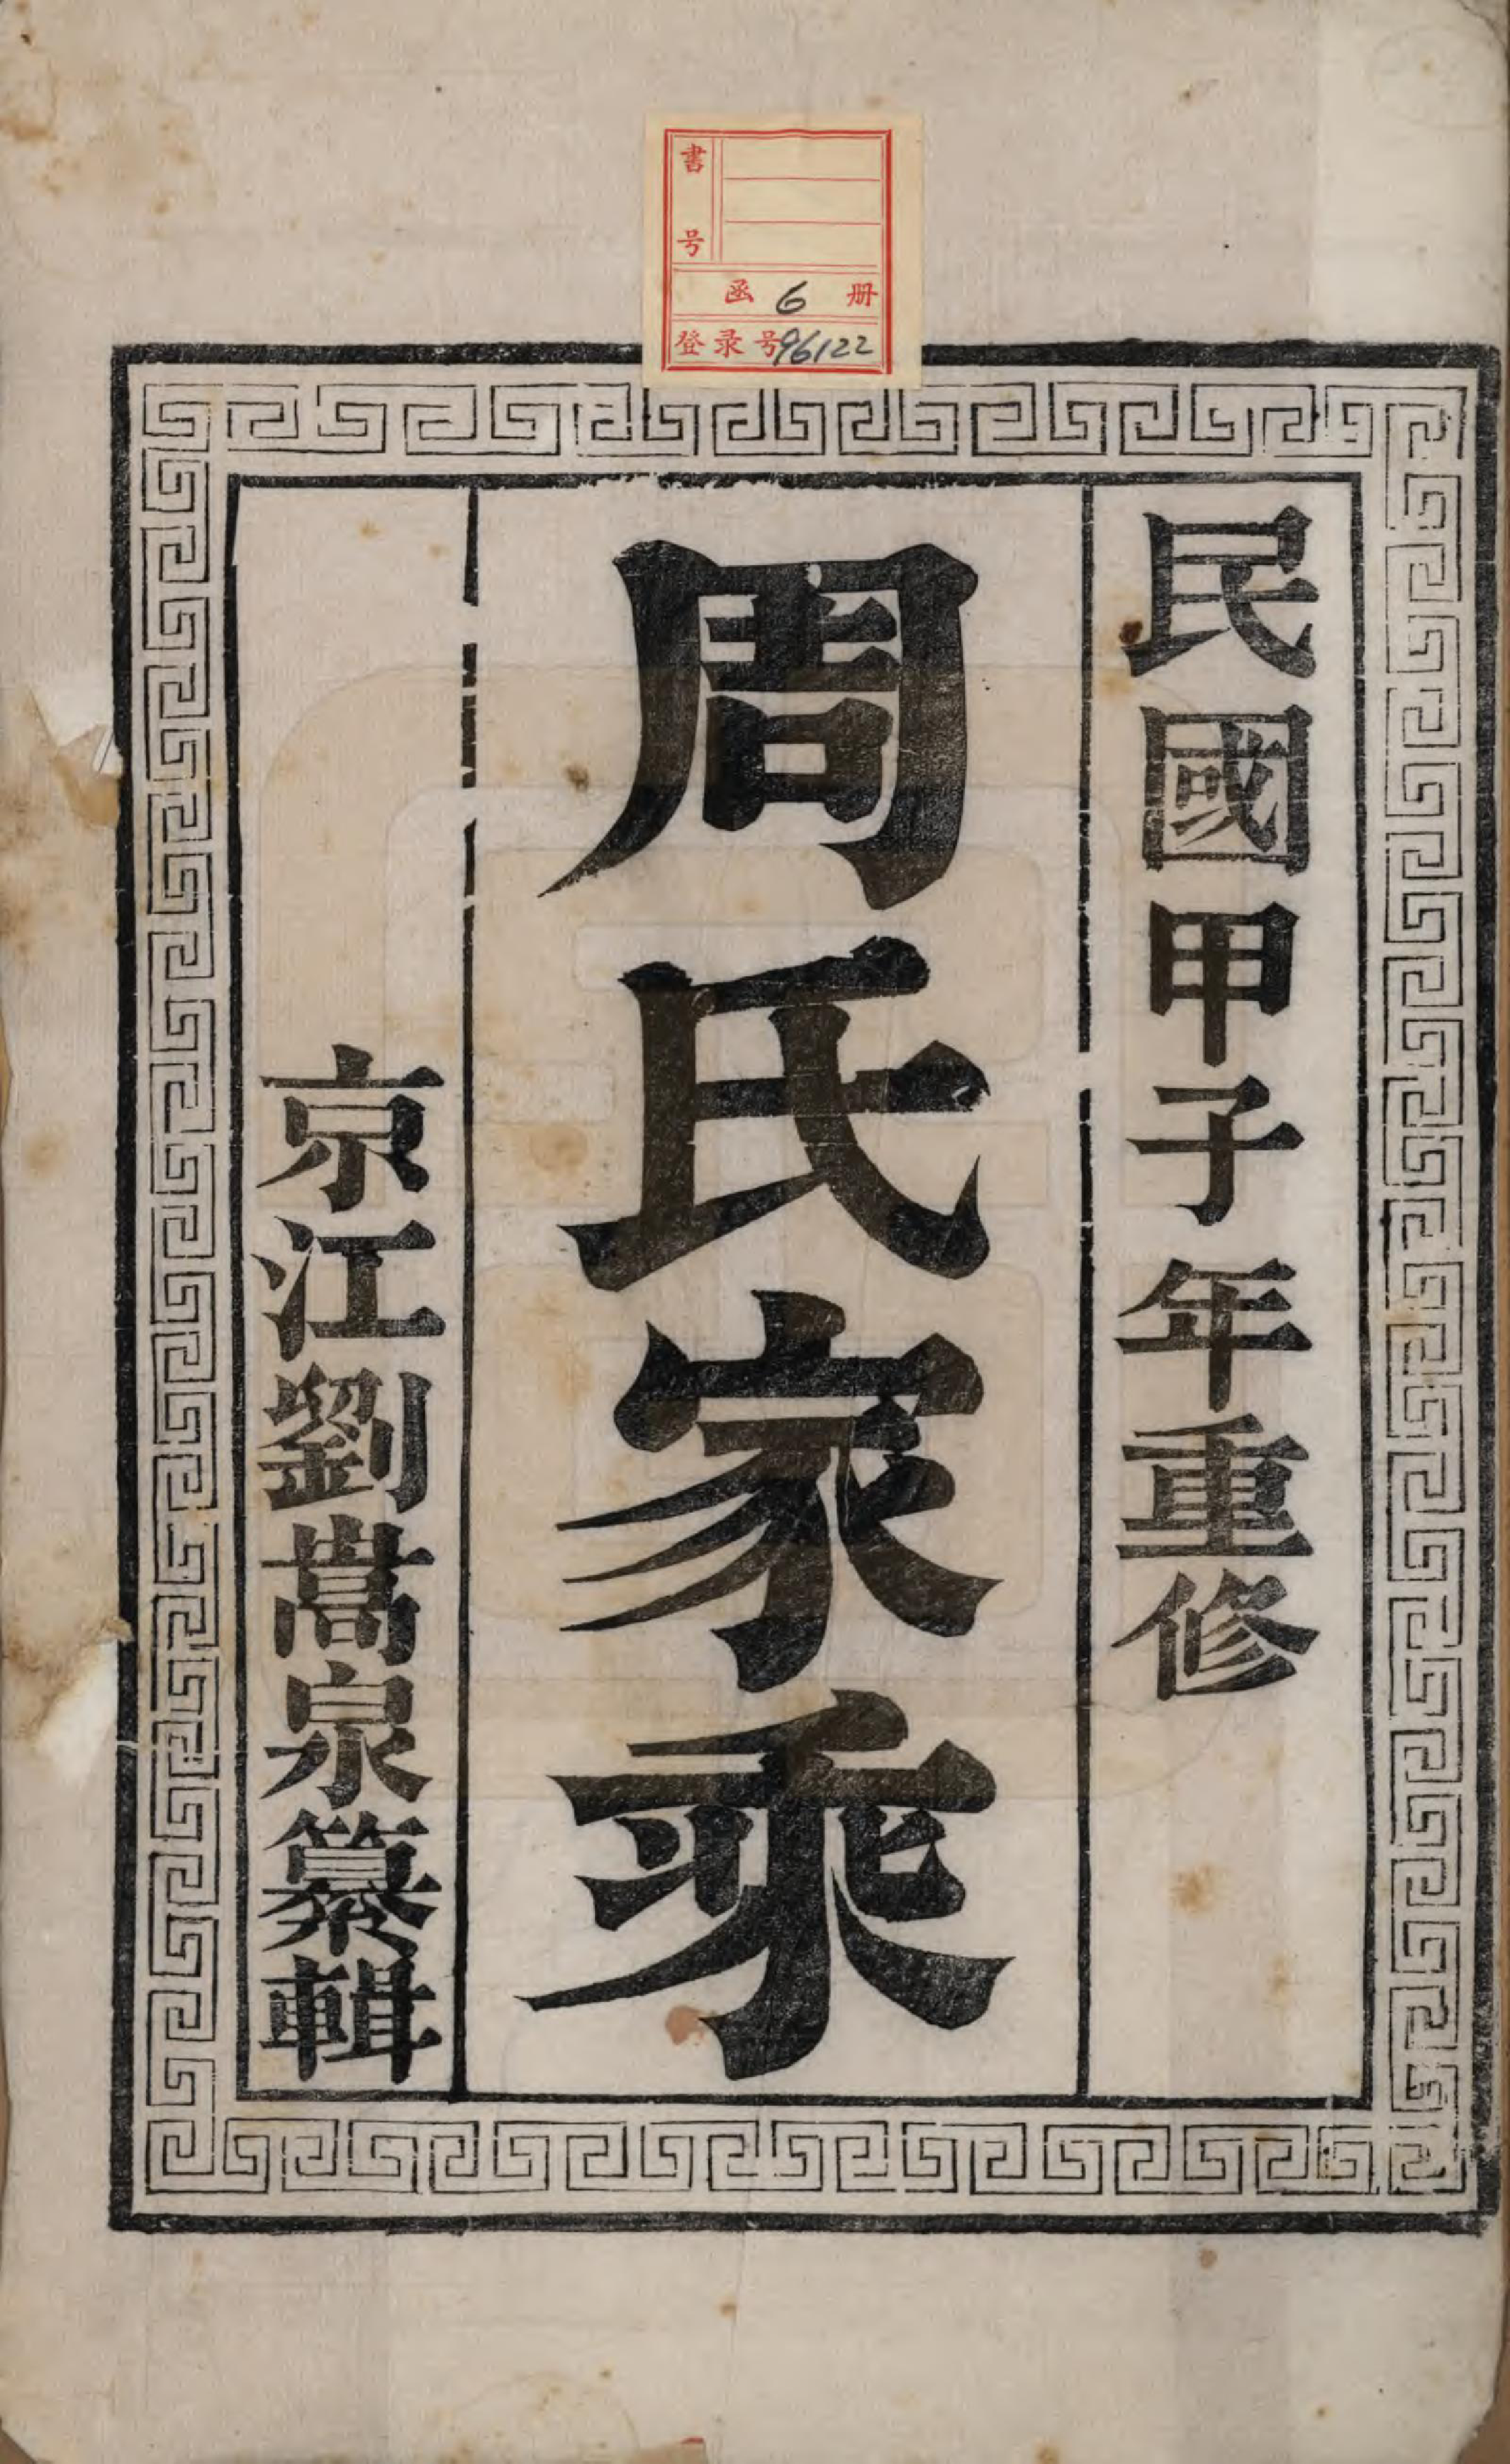 書号
函 6 册
登录号96122
民國甲子年重修
周氏家乘
京江劉嵩泉纂輯